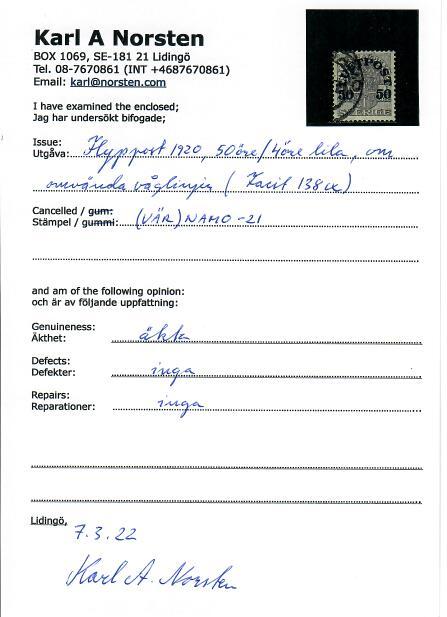 Karl A Norsten
BOX 1069, SE-181 21 Lidingö
Tel. 08-7670861 (INT +4687670861)
Email: karl@norsten.com
I have examined the enclosed;
Jag har undersökt bifogade;
Issue:
Utgåva: Flyppost 1920, 50 öre/4 öre lila, om
omvända våglinjer (Facit 138 cx)
Cancelled / gum:
Stämpel / gummi: (VÄR)NAMO -21
and am of the following opinion:
och är av följande uppfattning:
Genuineness:
Äkthet: äkta
Defects:
Defekter: inga
Repairs:
Reparationer: inga
Lidingö,
7.3.22
Karl A. Norsten
LUFTPOST
50 50
SVERIGE